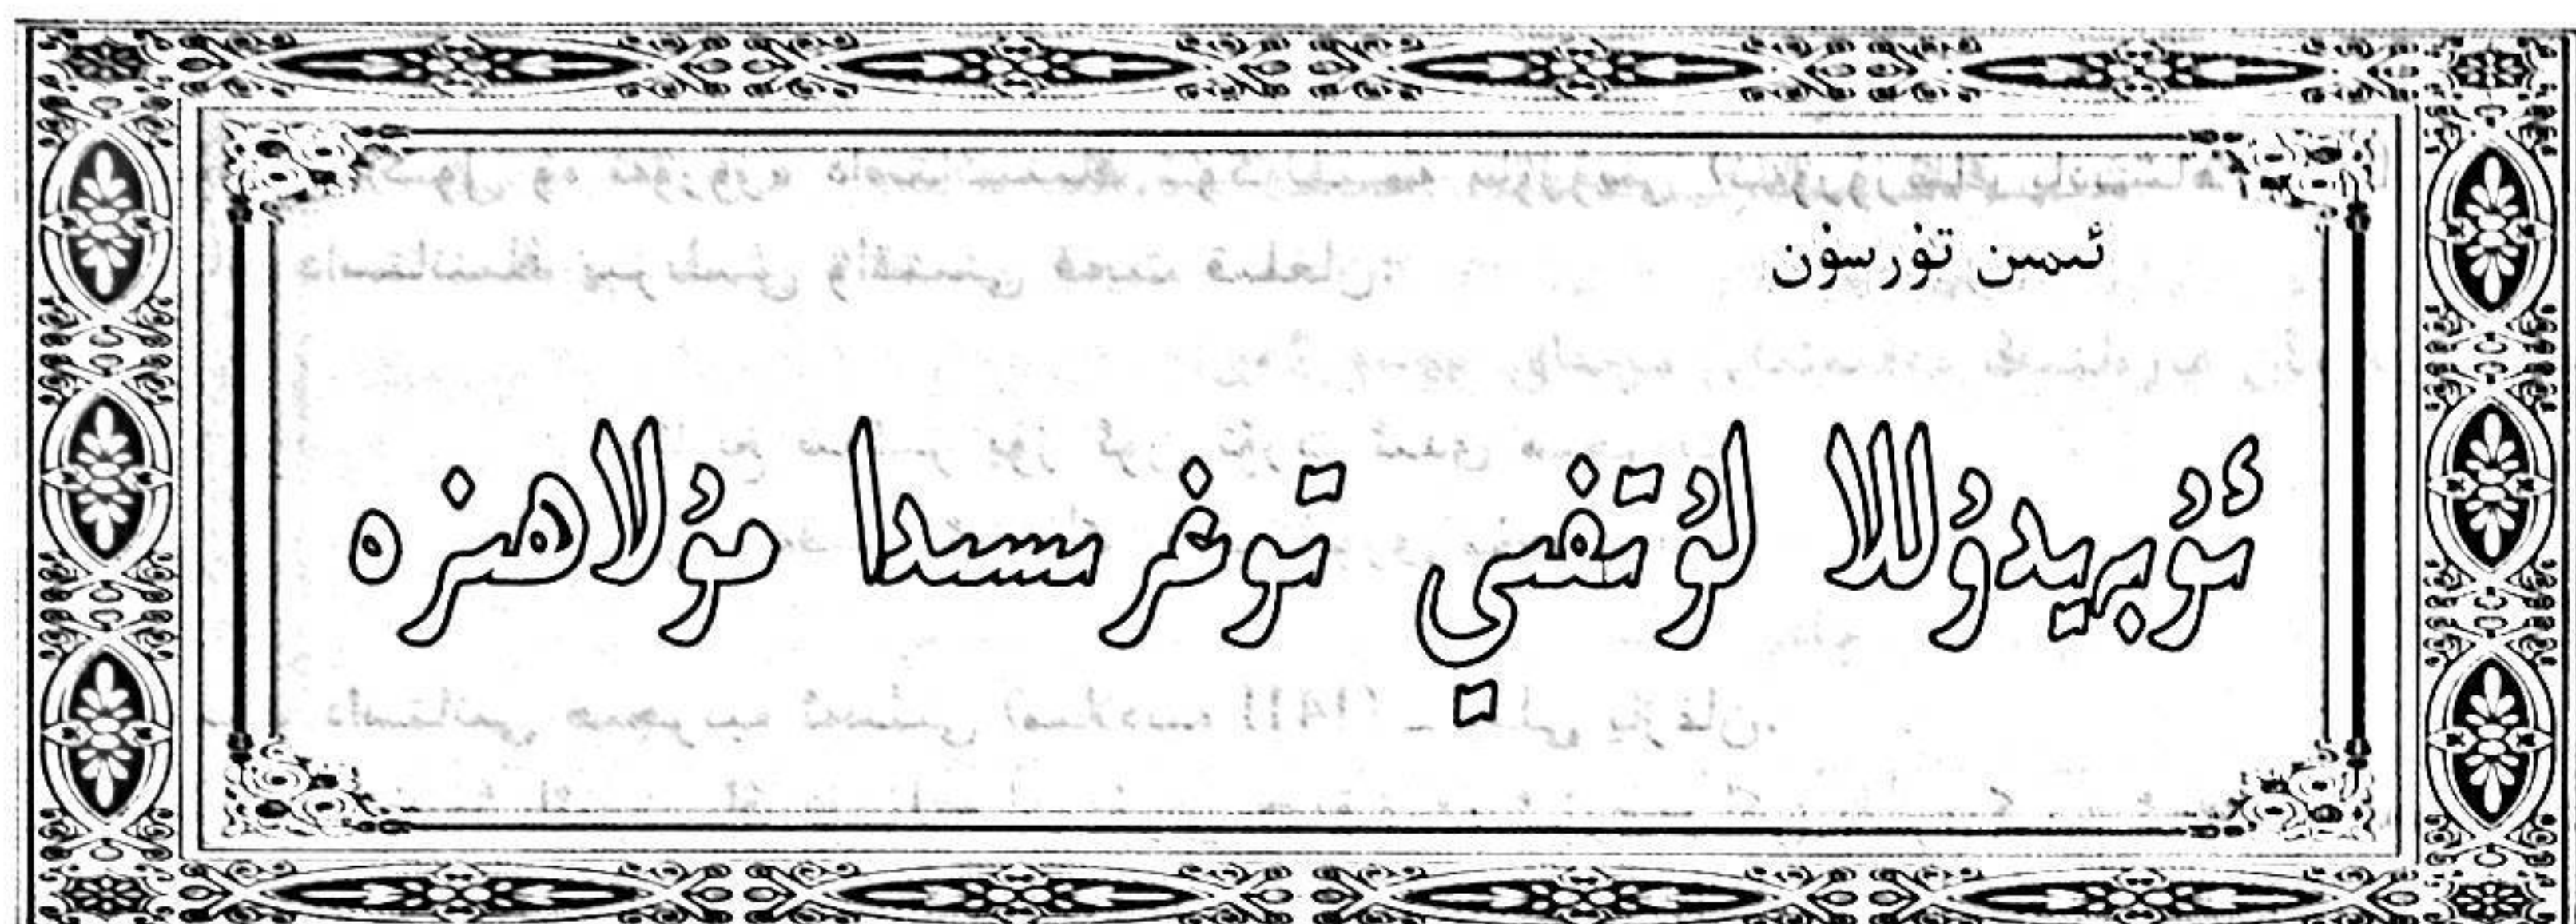 ئىمىن تۇرسۇن
ئۇبەيدۇللا لۇتفىي توغرىسىدا مۇلاھىزە